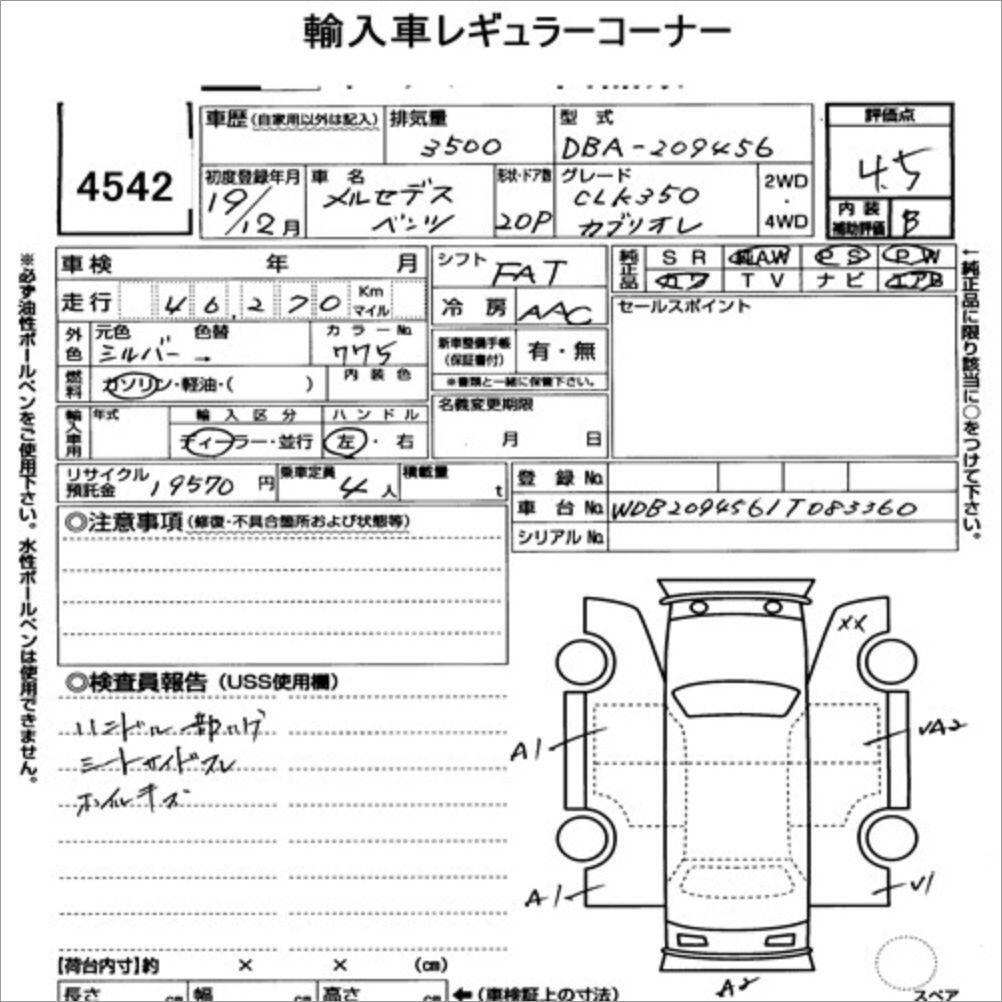 輸入車レギュラーコーナー
4542
車歴(自家用以外は記入) 排気量 3500 型式 DBA-209456
評価点 4.5
初度登録年月 19/12月 車名 メルセデス ベンツ 形状・ドア数 2DP グレード CLK350 カブリオレ 2WD・4WD
内装補助評価 B
車検 年 月
走行 46,270 Km マイル
シフト FAT
冷房 AAC
純正品 SR 純AW PS PW
カワ TV ナビ エアB
セールスポイント
外色 元色 シルバー 色替 → カラーNo. 775
燃料 ガソリン・軽油・( ) 内装色
新車整備手帳(保証書付) 有・無
※書類と一緒に保管下さい。
名義変更期限
月 日
輸入車用 年式 輸入区分 ディーラー・並行 ハンドル 左・右
リサイクル預託金 19570 円 乗車定員 4人 積載量 t
登録No.
車台No. WDB2094561T083360
シリアルNo.
◎注意事項(修復・不具合箇所および状態等)
◎検査員報告(USS使用欄)
ハンドル部ハゲ
シートサイドスレ
ホイルキズ
XX
A1
VA2
A1
V1
A2
スペア
【荷台内寸】約 × × (cm)
長さ cm 幅 cm 高さ cm ←(車検証上の寸法)
※必ず油性ボールペンをご使用下さい。水性ボールペンは使用できません。
←純正品に限り該当に○をつけて下さい。